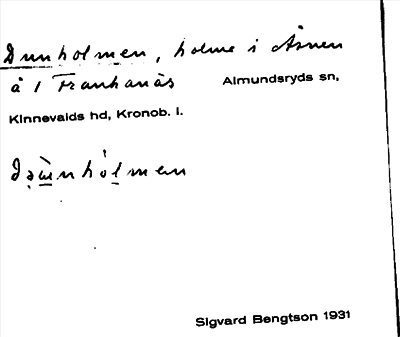 Dunholmen, holme i Åsnen
å 1 Franhanäs Almundsryds sn,
Kinnevalds hd, Kronob. l.
holmen
Sigvard Bengtson 1931